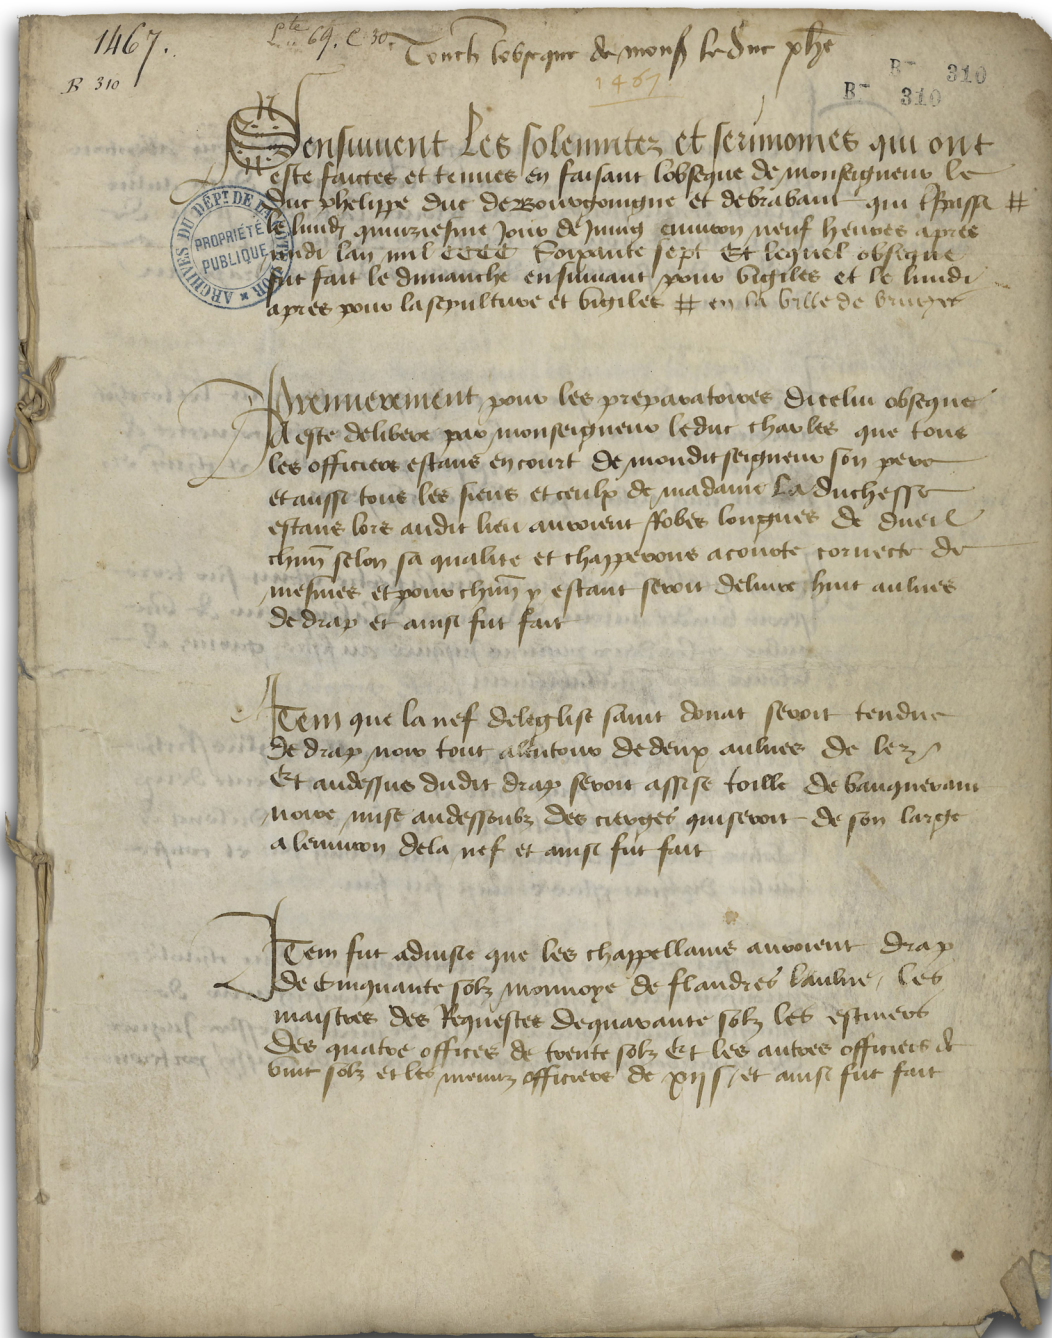 1467.
Lte 69. C. 30.
Touch lobseque de mons le duc phe
B 310
1467
B 310
B 310
Sensuiuent Les solemnitez et serimonies qui ont
este faictes et tenues en faisant lobseque de monseigneur le
duc phelippe duc de Bourgoingne et de brabant qui tspassa #
le lundi quinziesme Jour de Juing enuiron neuf heures apres
midi lan mil CCCC Soixante sept Et lequel obseque
fut fait le dimanche ensuiuant pour vigiles et le lundi
apres pour la sepulture et vigiles # en la ville de bruges
ARCHIVES DU DÉPT. DE LA CÔTE D'OR
PROPRIÉTÉ
PUBLIQUE
Premierement pour les preparatoires dicelui obseque
A este delibere par monseigneur le duc charles que tous
les officiers estans en court de mondit seigneur son pere
et aussi tous les siens et ceulx de madame La duchesse
estans lors audit lieu auroient Robes longues de dueil
chun selon sa qualite et chapperons a courte cornecte de
mesmes et pour chun y estant seroit deliure huit aulnes
de drap et ainsi fut fait
Item que la nef deleglise saint donat seroit tendue
de drap noir tout alentour de deux aulnes de lez
Et audessus dudit drap seroit assise toille de bauquerant
noire mise audessoubz des cierges qui seroit de son large
a lenuiron dela nef et ainsi fut fait
Item fut aduise que les chappellains auroient drap
de Cinquante solz monnoye de flandres laulne / les
maistres des Requestes de quarante solz les escuiers
des quatre offices de trente solz Et les autres officiers de
vint solz et les menuz officiers de xij s / et ainsi fut fait